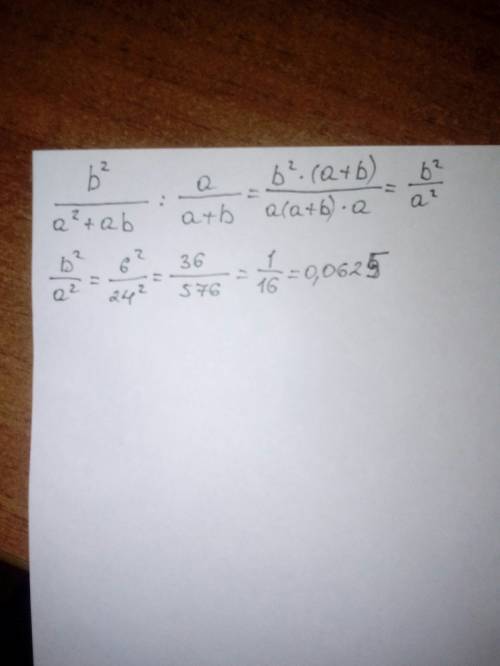 b²/(a²+ab) : a/(a+b) = b²·(a+b)/(a(a+b)·a) = b²/a²
b²/a² = 6²/24² = 36/576 = 1/16 = 0,0625